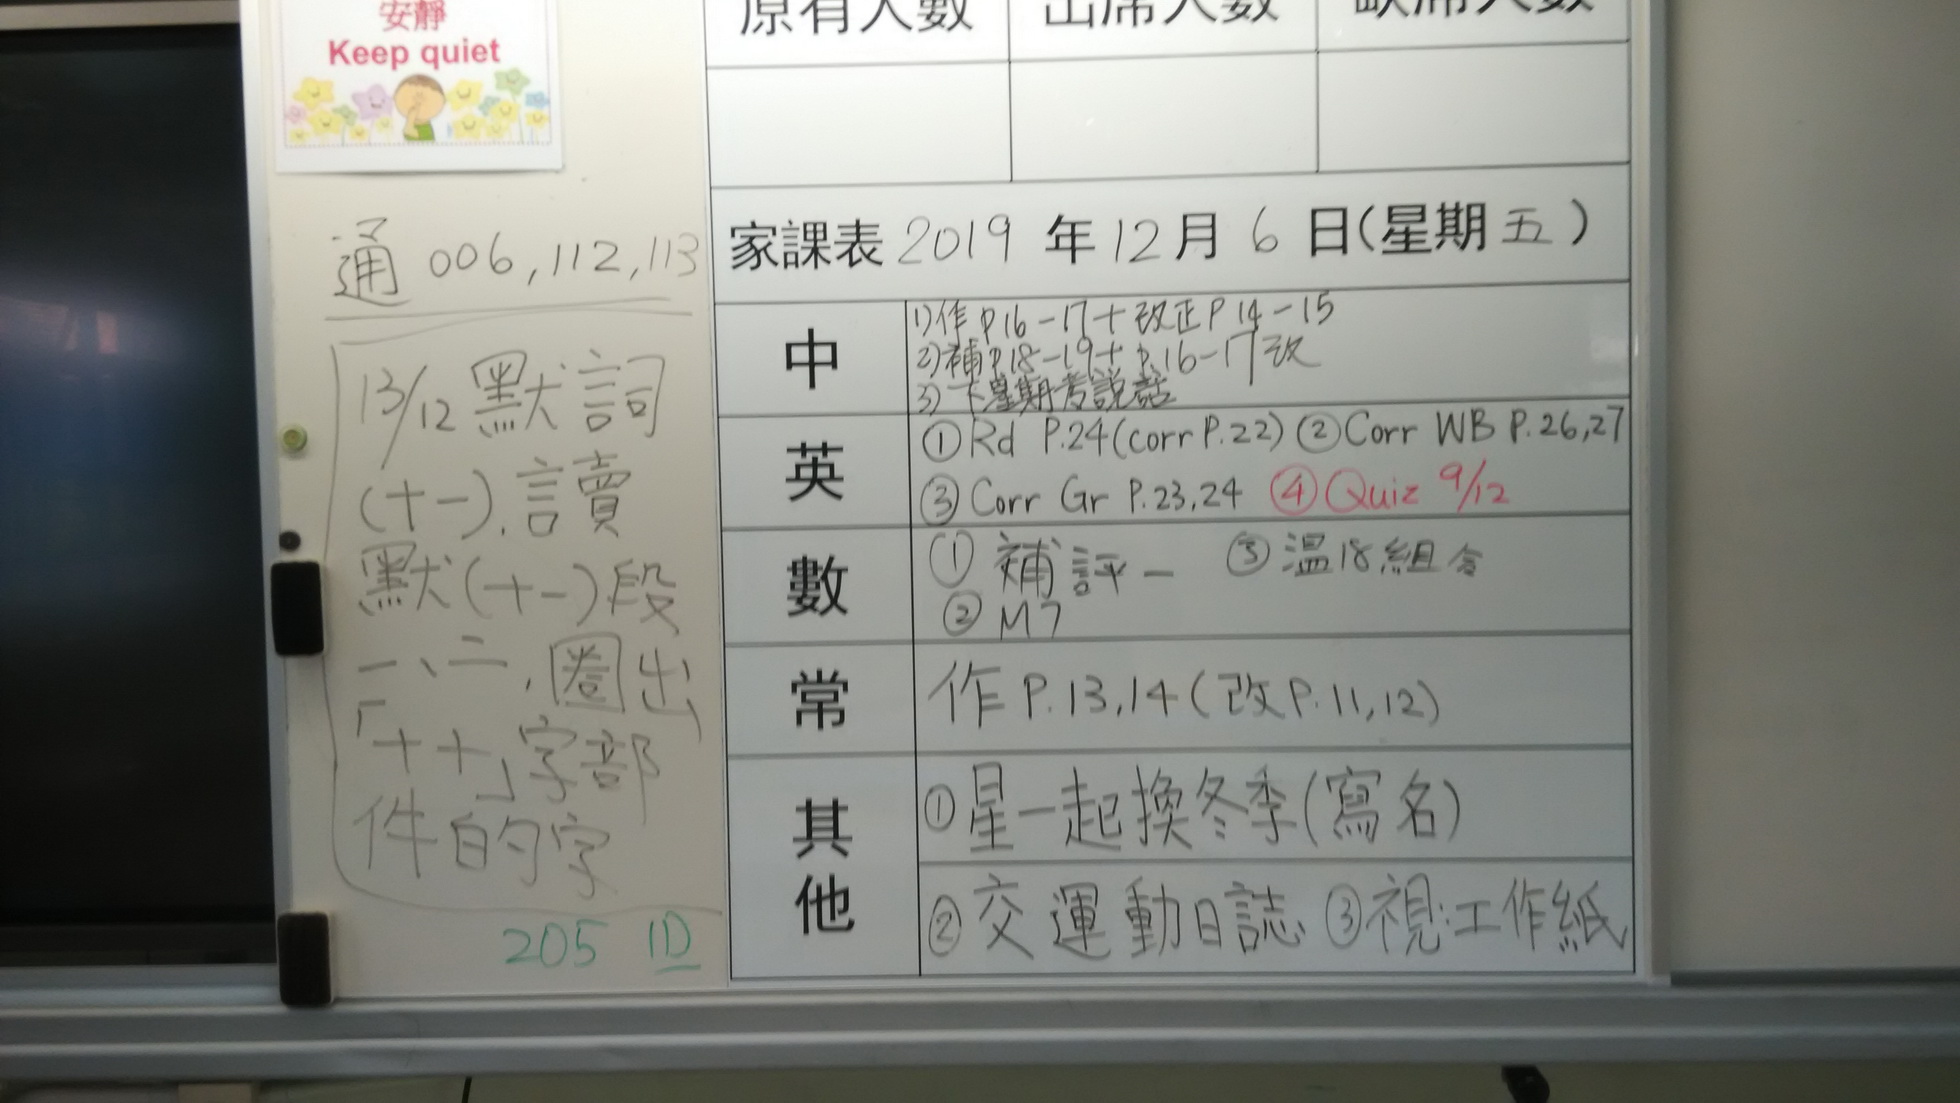 安靜
Keep quiet
原有人數 出席人數 缺席人數
通 006,112,113
13/12 默詞
(十一),讀
默(十一)段
一、二,圈出
「艹」字部
件的字
205 1D
家課表 2019 年 12 月 6 日(星期五)
中
1)作 P.16-17+改正P.14-15
2)補P.18-19+P.16-17改
3)下星期考説話
英
①Rd P.24(corr P.22) ②Corr WB P.26,27
③Corr Gr P.23,24 ④Quiz 9/12
數
① 補評一 ③温18組合
② M7
常
作 P.13,14(改P.11,12)
其他
①星一起換冬季(寫名)
②交運動日誌 ③視:工作紙